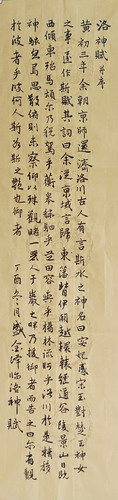 洛神賦并序
黃初三年余朝京師還濟洛川古人有言斯水之神名曰宓妃感宋玉對楚王神女
之事遂作斯賦其詞曰余從京域言歸東藩背伊闕越轘轅經通谷陵景山日既
西傾車殆馬煩爾乃稅駕乎蘅皋秣駟乎芝田容與乎楊林流眄乎洛川於是精移
神駭忽焉思散俯則未察仰以殊觀睹一麗人于巖之畔乃援御者而告之曰爾有覿
於彼者乎彼何人斯若斯之艷也御者
丁酉冬月盛金澤臨洛神賦